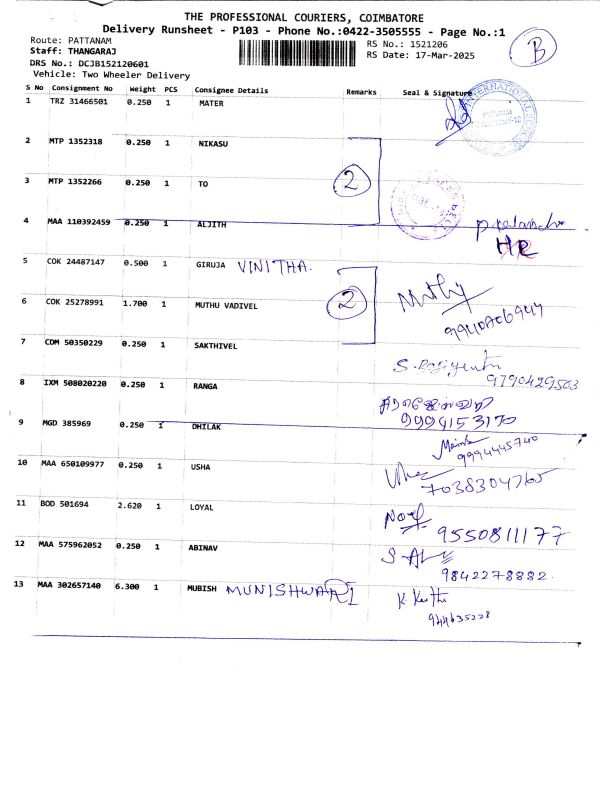 THE PROFESSIONAL COURIERS, COIMBATORE
Delivery Runsheet - P103 - Phone No.:0422-3505555 - Page No.:1
Route: PATTANAM
RS No.: 1521206
B
Staff: THANGARAJ
RS Date: 17-Mar-2025
DRS No.: DCJB152120601
Vehicle: Two Wheeler Delivery
S No Consignment No Weight PCS Consignee Details Remarks Seal & Signature
1 TRZ 31466501 0.250 1 MATER
2 MTP 1352318 0.250 1 NIKASU
2
3 MTP 1352266 0.250 1 TO
4 MAA 110392459 0.250 1 ALJITH
HR
5 COK 24487147 0.500 1 GIRUJA VINITHA.
6 COK 25278991 1.700 1 MUTHU VADIVEL 2 Muthy
7 CDM 50350229 0.250 1 SAKTHIVEL
9790429503
8 IXM 508020220 0.250 1 RANGA
9994153170
9 MGD 385969 0.250 1 DHILAK
9994445740
10 MAA 650109977 0.250 1 USHA
7038304765
11 BOD 501694 2.620 1 LOYAL
9550811177
12 MAA 575962052 0.250 1 ABINAV
9842278882.
13 MAA 302657140 6.300 1 MUBISH MUNISHWARI
944635228